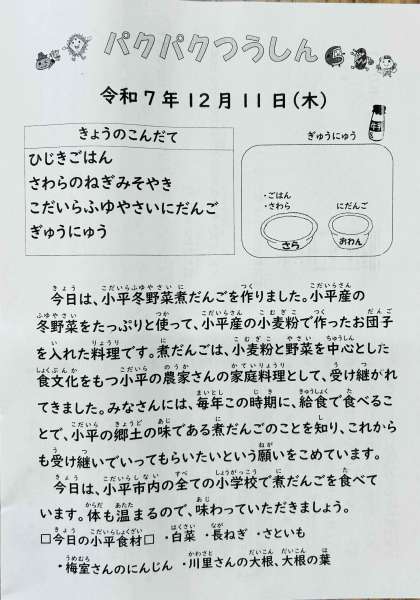 パクパクつうしん
令和7年12月11日(木)
きょうのこんだて
ひじきごはん
さわらのねぎみそやき
こだいらふゆやさいにだんご
ぎゅうにゅう
ぎゅうにゅう
・ごはん
・さわら
にだんご
さら
おわん
今日は、小平冬野菜煮だんごを作りました。小平産の
冬野菜をたっぷりと使って、小平産の小麦粉で作ったお団子
を入れた料理です。煮だんごは、小麦粉と野菜を中心とした
食文化をもつ小平の農家さんの家庭料理として、受け継がれ
てきました。みなさんには、毎年この時期に、給食で食べるこ
とで、小平の郷土の味である煮だんごのことを知り、これから
も受け継いでいってもらいたいという願いをこめています。
今日は、小平市内の全ての小学校で煮だんごを食べて
います。体も温まるので、味わっていただきましょう。
□今日の小平食材□ ・白菜 ・長ねぎ ・さといも
・梅室さんのにんじん ・川里さんの大根、大根の葉